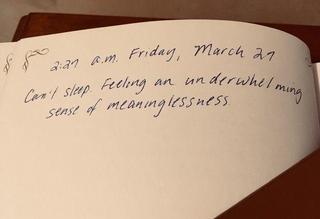 2:27 a.m. Friday, March 27
Can't sleep. Feeling an underwhelming
sense of meaninglessness